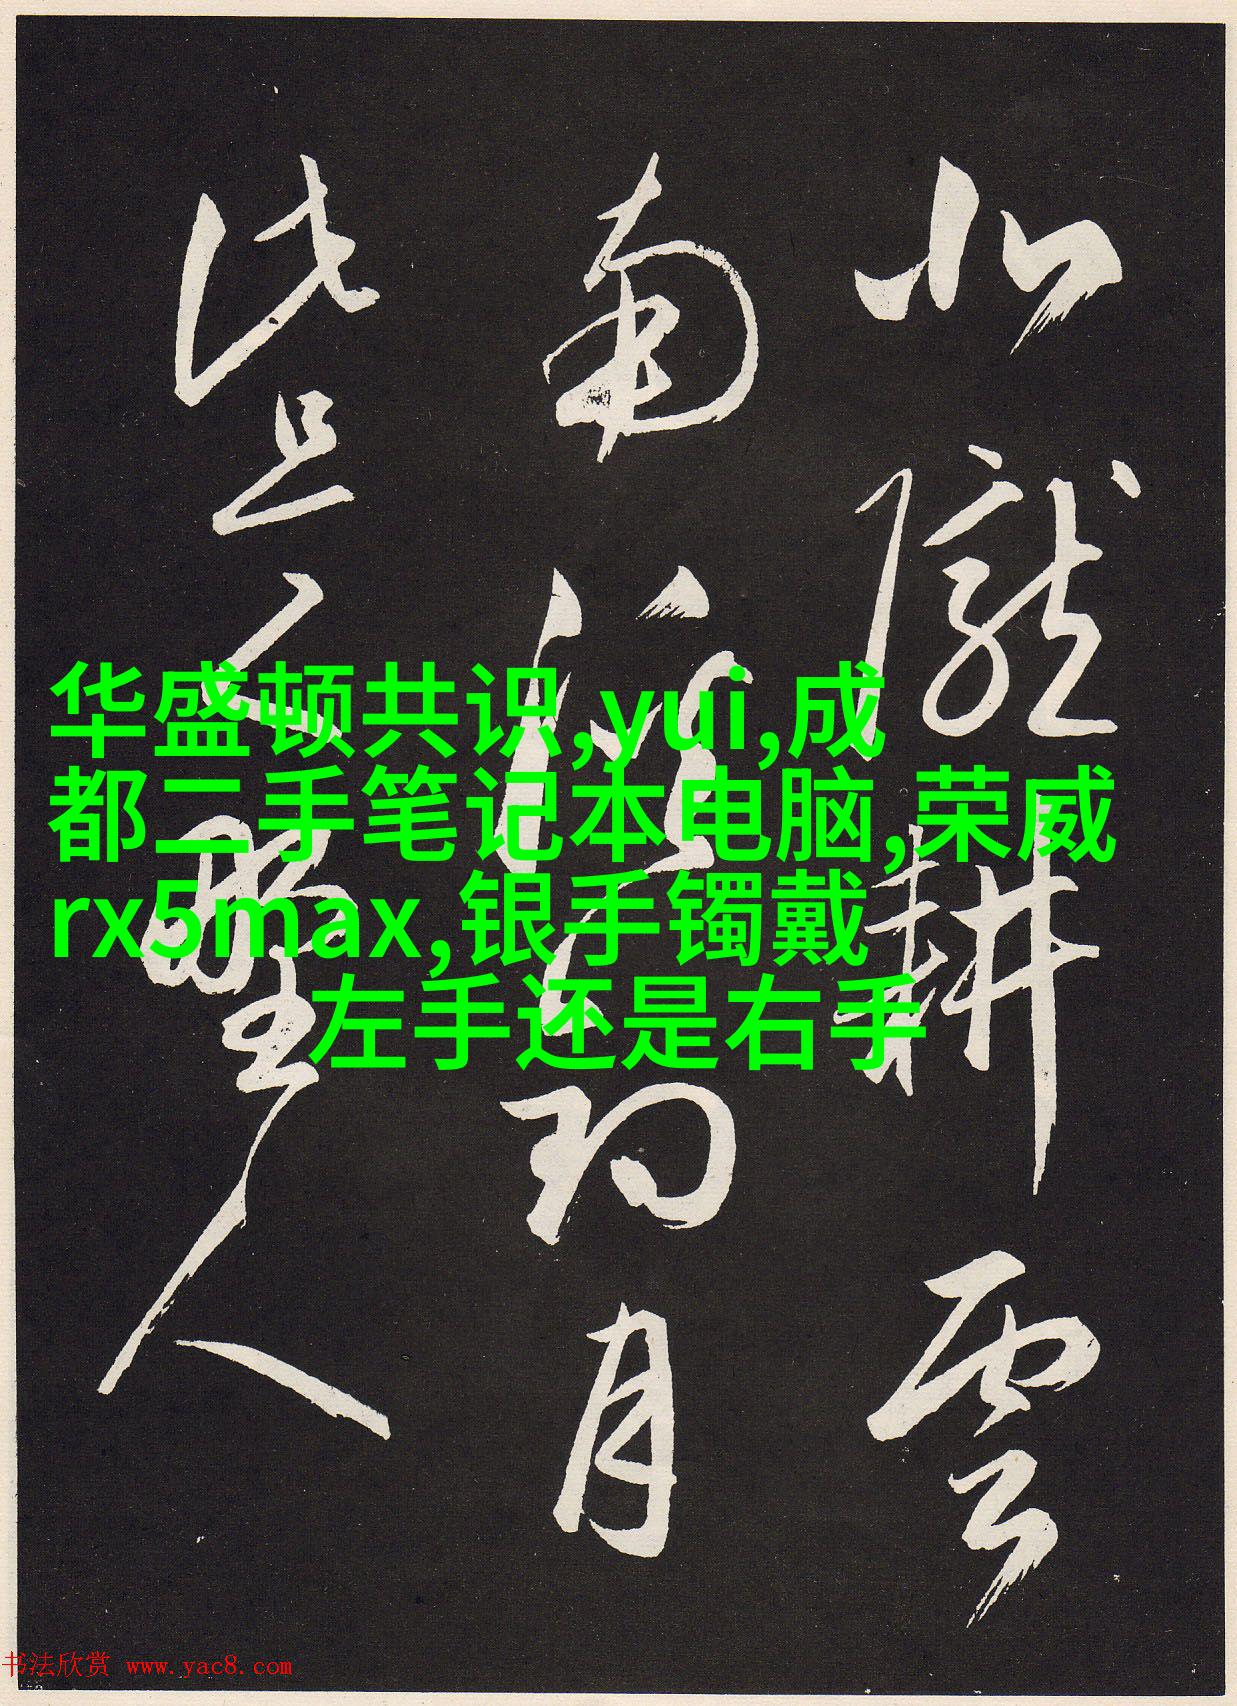 北隴耕雲
南溪釣月
此是野人
华盛顿共识,yui,成
都二手笔记本电脑,荣威
rx5max,银手镯戴
左手还是右手
书法欣赏 www.yac8.com